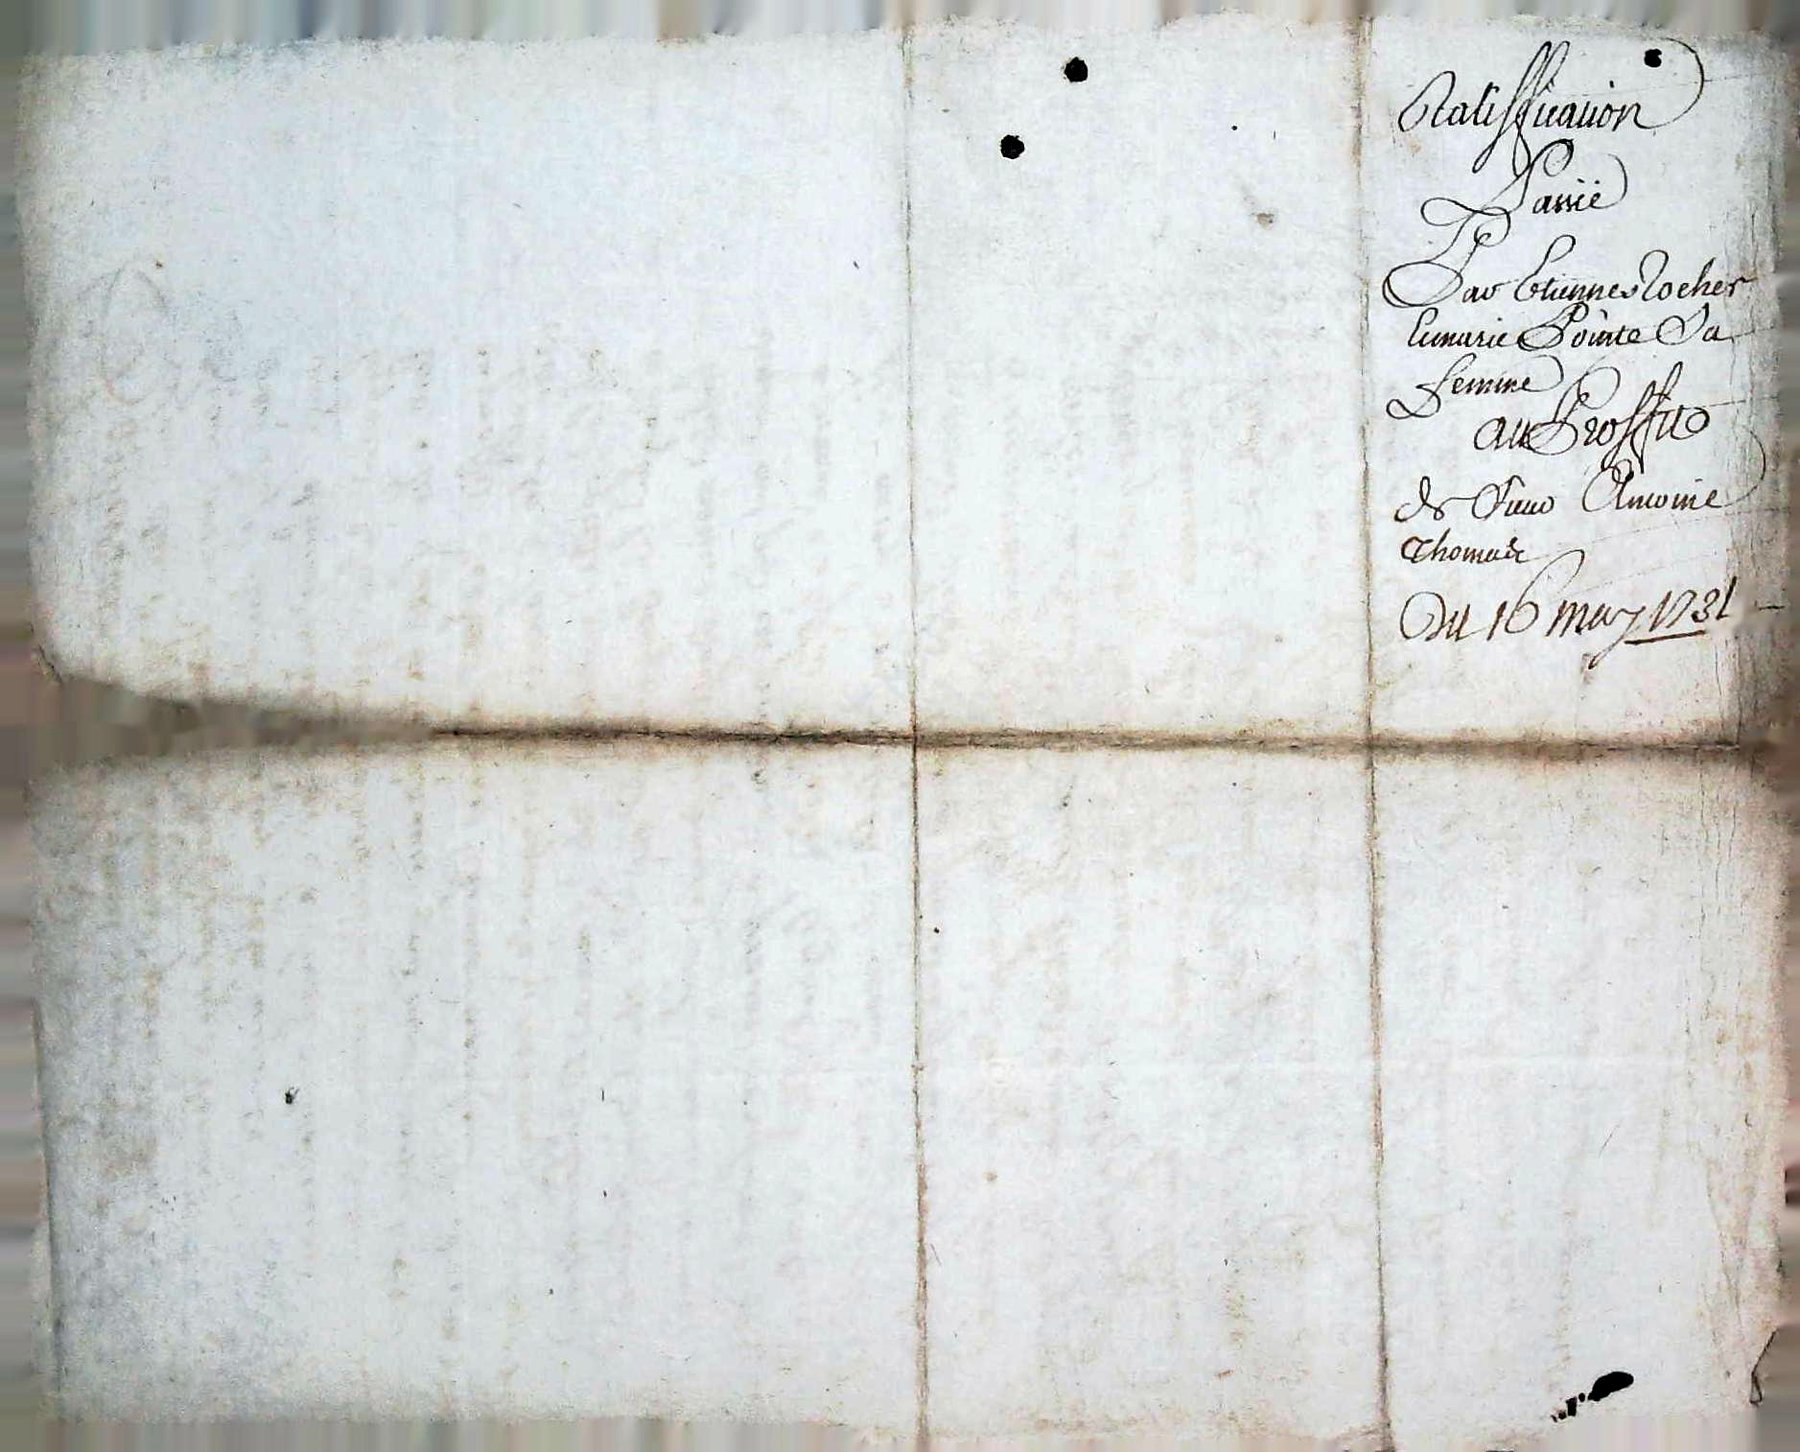 Ratiffication
Passée
Par Etienne Rocher
Et marie Pointe Sa
femme
au Proffit
de Sieur Antoine
Thomas
Du 16 may 1731